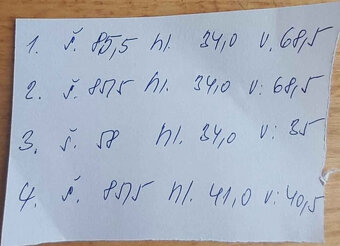 1. š. 85,5 hl. 34,0 v. 68,5
2. š. 85,5 hl. 34,0 v: 68,5
3. š. 58 hl. 34,0 v: 35
4. š. 85,5 hl. 41,0 v: 40,5